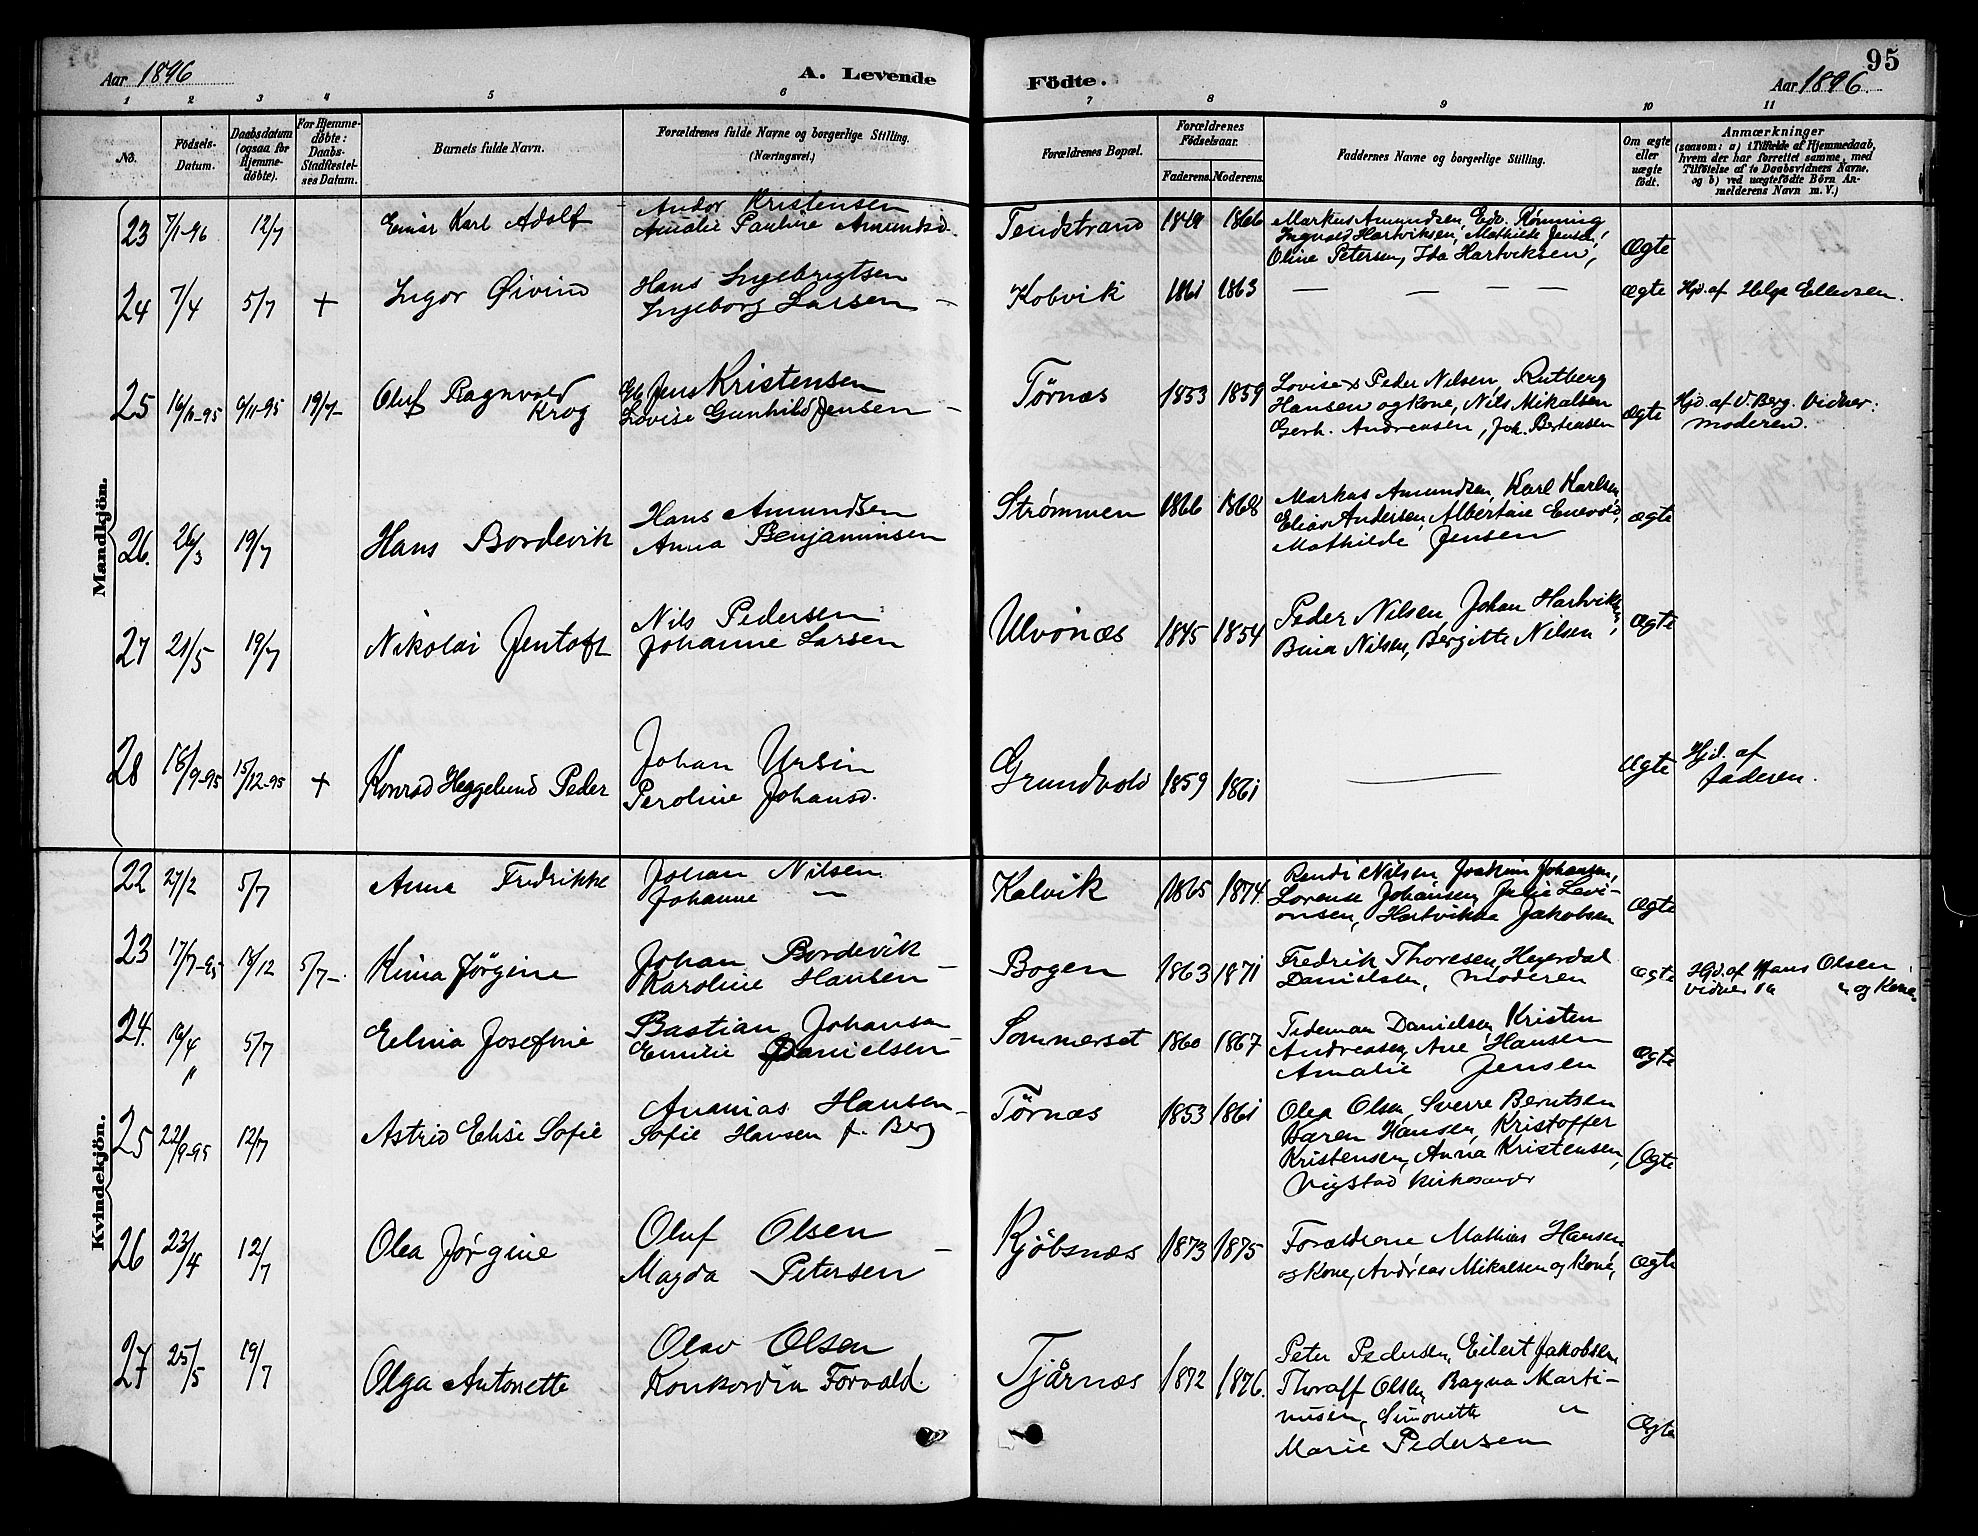 95
Aar 1896
A. Levende
Födte.
Aar 1896
1 2 3 4 5 6 7 8 9 10 11
No.
Födsels-Datum.
Daabsdatum (ogsaa for Hjemme-döbte).
For Hjemme-döbte: Daabs-Stadfæstel-ses Datum.
Barnets fulde Navn.
Forældrenes fulde Navne og borgerlige Stilling. (Næringsvei.)
Forældrenes Bopæl.
Forældrenes Födselsaar.
Faderens. Moderens.
Faddernes Navne og borgerlige Stilling.
Om ægte eller uægte födt.
Anmærkninger
(saasom: a) i Tilfælde af Hjemmedaab,
hvem der har forrettet samme, med
Tilföielse af to Daabsvidners Navne,
og b) ved uægtefödte Börn An-
melderens Navn m. V.)
Mandkjön.
23 7/1-96 12/7 Einar Karl Adolf
Andor Kristensen
Amalie Pauline Amundsd.
1849 1866
Markus Amundsen, Edv. Rønning
Ingvald Hartviksen, Mathilde Jensen,
Oline Petersen, Ida Hartviksen,
Ægte
24 7/4 5/7 + Ingor Øivind
Hans Ingebrigtsen
Ingeborg Larsen –
Kobvik 1861 1863 — — — —
ægte Hjd. af Helge Ellevsen.
25 16/10-95 6/11-95 19/7- Oluf Ragnvald
Krog
Jens Kristensen
Lovise Gunhild Jensen –
Tørnæs 1853 1859
Lovise & Peder Nilsen, Rutberg
Hansen og kone, Nils Mikalsen
Gerh. Andreasen, Joh. Bertensen
ægte Hjd. af V. Berg. Vidner:
moderen.
26. 26/3 19/7 Hans Bordevik
Hans Amundsen
Anna Benjaminsen
Strømmen 1866 1868
Markus Amundsen, Karl Karlsen,
Elias Andersen, Albertine Enevold,
Mathilde Jensen
ægte
27 21/5 19/7 Nikolai Jentoft
Nils Pedersen
Johanne Larsen
Ulvønæs 1845 1854
Peder Nilsen, Johan Hartviksen,
Bina Nilsen, Bergitte Nilsen
Ægte
28 18/9-95 15/12-95 + Konrad Heggelund Peder
Johan Ursin
Peroline Johansd.
Grundvold 1859 1861 —
ægte Hjd. af
faderen.
Kvindekjön.
22 27/2 5/7 Anna Fredrikke
Johan Nilsen
Johanne "
Kalvik 1865 1874.
Randi Nilsen, Joakim Johansen,
Lorense Johansen, Julie Levi-
onsen, Hartvikka Jakobsen
ægte
23 17/7-95 18/12 5/7-. Kina Jørgine
Johan Bordevik
Karoline Hansen –
Bogen 1863 1871
Fredrik Thoresen, Heyerdal
Danielsen, moderen
ægte Hjd. af Hans Olsen
vidner " og Kone
24. 16/4 5/7 Elina Josefine
Bastian Johansen
Emilie Danielsen
Sommerset 1860 1867
Tideman Danielsen, Kristen
Andreasen, Ane Hansen
Amalie Jensen
ægte
25 22/9-95 12/7 Astrid Elise Sofie
Ananias Hansen –
Sofie Hansen f. Berg
Tørnæs 1853 1861
Olea Olsen, Sverre Berntsen
Karen Hansen, Kristoffer
Kristensen, Anna Kristensen,
Vigstad kirkesanger
Ægte
26 23/4 12/7 Olea Jørgine
Oluf Olsen
Magda Petersen –
Kjøbsnæs 1873 1875
Forældrene Mathias Hansen
og Kone, Andreas Mikalsen og kone,
ægte
27 25/5 19/7 Olga Antonette
Olav Olsen
Konkordia Forvald.
Tjårnæs 1872 1876.
Peter Pedersen, Eilert Jakobsen
Thoralf Olsen, Ragna Marti-
nusen, Simonette "
Marie Pedersen
Ægte